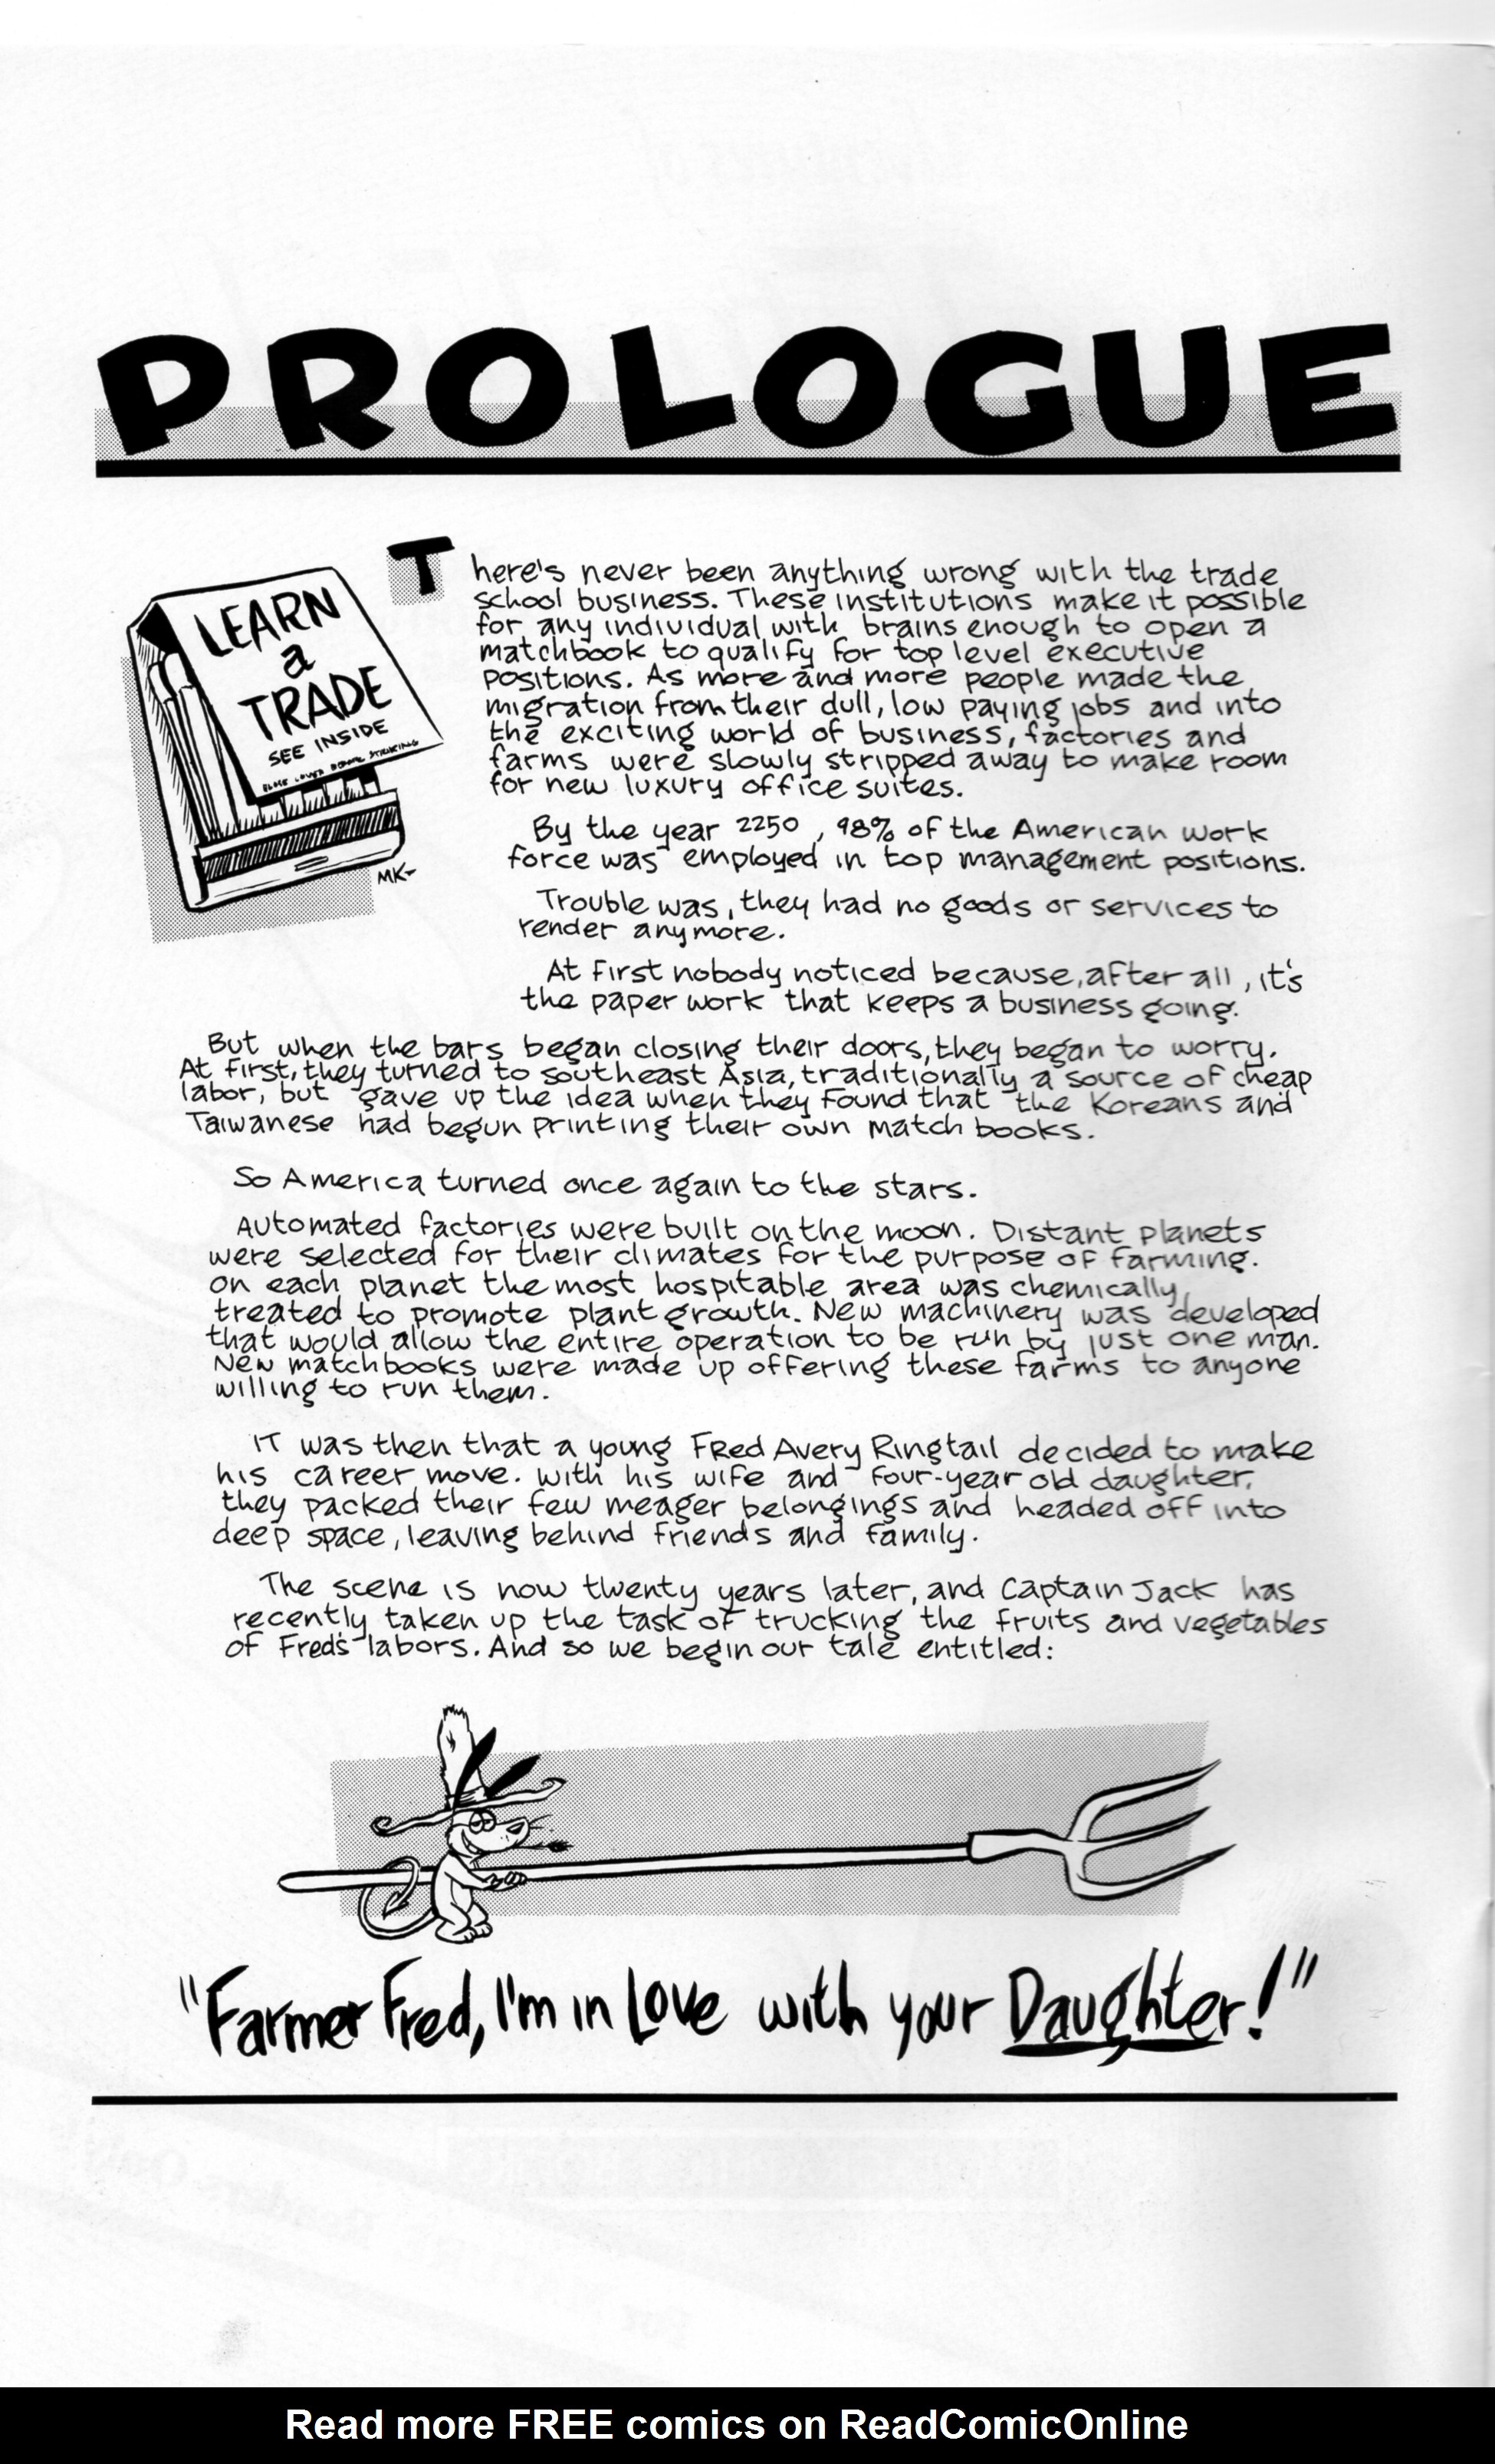 PROLOGUE
LEARN
a
TRADE
SEE INSIDE
CLOSE COVER BEFORE STRIKING
MK-
There's never been anything wrong with the trade
school business. These institutions make it possible
for any individual with brains enough to open a
matchbook to qualify for top level executive
positions. As more and more people made the
migration from their dull, low paying jobs and into
the exciting world of business, factories and
farms were slowly stripped away to make room
for new luxury office suites.
By the year 2250, 98% of the American work
force was employed in top management positions.
Trouble was, they had no goods or services to
render anymore.
At first nobody noticed because, after all, it's
the paper work that keeps a business going.
But when the bars began closing their doors, they began to worry.
At first, they turned to southeast Asia, traditionally a source of cheap
labor, but gave up the idea when they found that the Koreans and
Taiwanese had begun printing their own match books.
So America turned once again to the stars.
Automated factories were built on the moon. Distant planets
were selected for their climates for the purpose of farming.
on each planet the most hospitable area was chemically
treated to promote plant growth. New machinery was developed
that would allow the entire operation to be run by just one man.
New matchbooks were made up offering these farms to anyone
willing to run them.
IT was then that a young Fred Avery Ringtail decided to make
his career move. with his wife and four-year old daughter,
they packed their few meager belongings and headed off into
deep space, leaving behind friends and family.
The scene is now twenty years later, and Captain Jack has
recently taken up the task of trucking the fruits and vegetables
of Fred's labors. And so we begin our tale entitled:
"Farmer Fred, I'm in Love with your Daughter!"
Read more FREE comics on ReadComicOnline